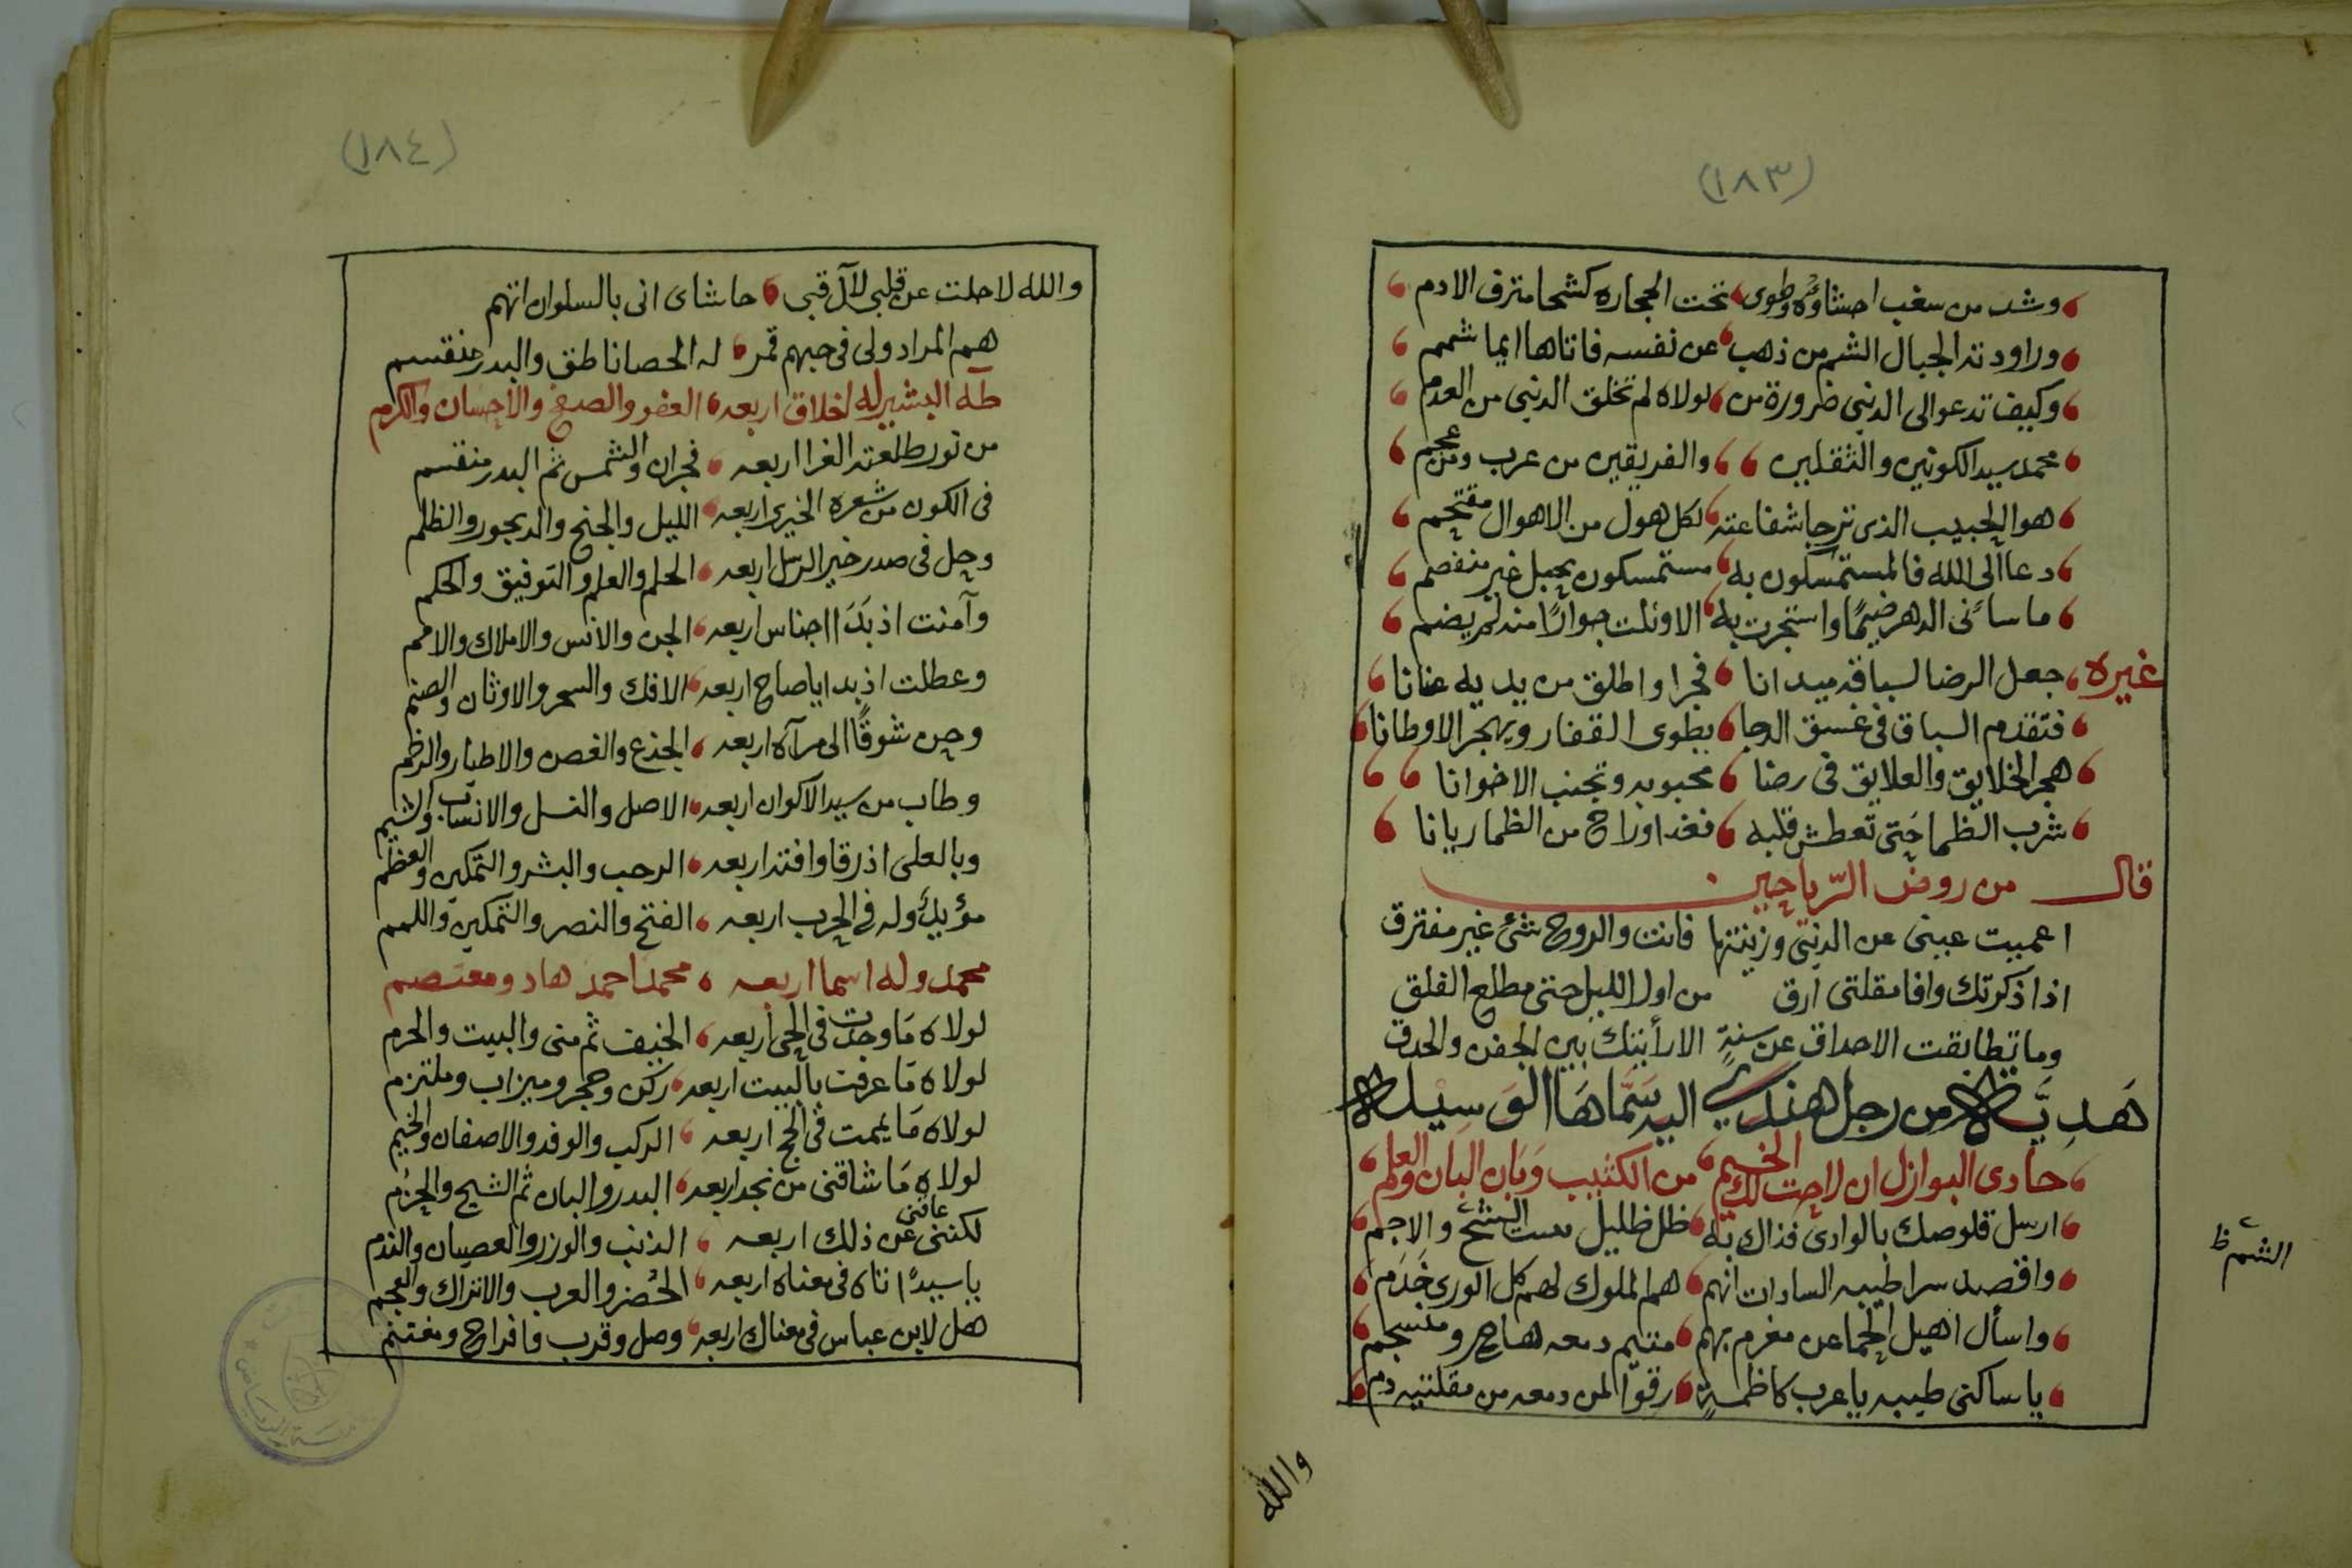 (١٨٣)
وشد من سغب احشاؤه وطوى تحت الحجاره كشحا مترف الادم
وراودته الجبال الشم من ذهب عن نفسه فاتاها ايما شمم
وكيف تدعوا الى الدنيى ضرورة من لولاه لم تخلق الدنيى من العدم
محمد سيد الكونين والثقلين والفريقين من عرب ومن عجم
هو الحبيب الذى ترجا شفاعته لكل هول من الاهوال مقتحم
دعا الى الله فالمستمسكون به مستمسكون بحبل غير منفصم
ما سائنى الدهر ضيمًا واستجرت به الا ونلت جوارًا منه لم يضم
غيره جعل الرضا لسباقه ميدانا فجرا واطلق من يديه عنانا
فتقدم السباق فى غسق الدجا يطوى القفار ويهجر الاوطانا
هجر الخلايق والعلايق فى رضا محبوبه وتجنب الاخوانا
شرب الظما حتى تعطش قلبه فغدا وراح من الظما ريانا
قال من روض الرّياحين
اعميت عينى عن الدنيى وزينتها فانت والروح شئ غير مفترق
اذا ذكرتك وافا مقلتى ارق من اول الليل حتى مطلع الفلق
وما تطابقت الاحداق عن سنةٍ الا رأيتك بين الجفن والحدق
هَدِيَّة من رجل هندى اليه سَمَّاهَا الوَسِيلة
حادى البوازل ان لاحت لك الخيم من الكثيب وَبَان البان والعلم
ارسل قلوصك بالوادى فذاك به ظل ظليل الشيح والاجم
الشّم ظ
واقصد سرا طيبه السادات انهم هم الملوك لهم كل الورى خَدَم
واسأل اهيل الحما عن مغرم بهم متيم دمعه هاج ومنسجم
يا ساكنى طيبه يا عرب كاظمةٍ رقوا لمن دمعه من مقلتيه دم
والله
(١٨٤)
والله لا حلت عن قلبى لآل قبى حاشاى انى بالسلوان اتهم
هم المراد ولى فى حبهم قمر له الحصا ناطق والبدر منقسم
طه البشير له اخلاق اربعه العفو والصفح والاحسان والكرم
من نور طلعته الغرا اربعه فجران والشمس ثم البدر منقسم
فى الكون من شعره الخيرى اربعه الليل والجنح والديجور والظلم
وحل فى صدر خير الرسل اربعه الحلم والعلم والتوفيق والحكم
وآمنت اذ بَدَا اجناس اربعه الجن والانس والاملاك والامم
وعطلت اذ بدا ياصاح اربعه الافك والسحر والاوثان والصنم
وحن شوقًا الى مرآه اربعه الجذع والغصن والاطيار والرخم
وطاب من سيد الاكوان اربعه الاصل والنسل والانساب والشيم
وبالعلى اذ رقا وافته اربعه الرحب والبشر والتمكين والعظم
مؤيك وله فى الحرب اربعه الفتح والنصر والتمكين واللمم
محمد وله اسما اربعه محمد احمد هاد ومعتصم
لولاه مَا وجدت فى الحى اربعه الخيف ثم منى والبيت والحرم
لولاه مَا عرفت بالبيت اربعه ركن وحجر وميزاب وملتزم
لولاه مَا يممت فى الحج اربعه الركب والوفد والاصفان والخيم
لولاه مَا شاقنى من نجد اربعه البدر والبان ثم الشيح والحزم
لكننى عاقنى عن ذلك اربعه الذنب والوزر والعصيان والندم
يا سيدًا تاه فى معناه اربعه الحضر والعرب والاتراك والعجم
هل لابن عباس فى مغناك اربعه وصل وقرب وافراح ومغتنم